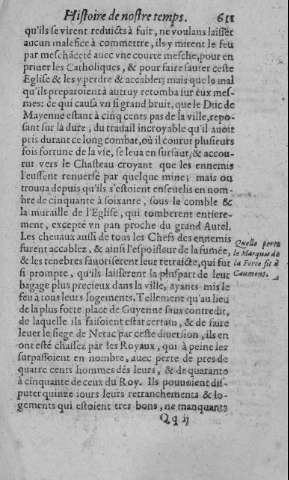 Histoire de nostre temps. 611
qu'ils se virent reduicts à fuir, ne voulans laisser
aucun malefice à commettre, ils y mirent le feu
par meschãceté auec vne courte mesche, pour en
priuer les Catholiques, & pour faire sauter ceste
Eglise & les y perdre & accabler; mais que le mal
qu'ils preparoient à autruy retomba sur eux mes-
mes: ce qui causa vn si grand bruit, que le Duc de
Mayenne estant à cinq cents pas de la ville, repo-
sant sur la dure, du trauail incroyable qu'il auoit
pris durant ce long combat, où il courut plusieurs
fois fortune de la vie, se leua en sursaut, & accou-
rut vers le Chasteau croyant que les ennemis
l'eussent renuersé par quelque mine; mais on
trouua depuis qu'ils s'estoient enseuelis en nom-
bre de cinquante à soixante, sous le comble &
la muraille de l'Eglise, qui tomberent entiere-
ment, excepté vn pan proche du grand Autel.
Les cheuaux aussi de tous les Chefs des ennemis
furent accablez, & ainsi l'espoisseur de la fumée,
& les tenebres fauoriserent leur retraicte, qui fut
si prompte, qu'ils laisserent la pluspart de leur
bagage plus precieux dans la ville, ayants mis le
feu à tous leurs logements. Tellement qu'au lieu
de la plus forte place de Guyenne sans contredit,
de laquelle ils faisoient estat certain, & de faire
leuer le siege de Nerac par ceste diuersion, ils en
ont esté chassez par les Royaux, qui à peine les
surpassoient en nombre, auec perte de pres de
quatre cents hommes des leurs, & de quarante
à cinquante de ceux du Roy. Ils pouuoient dis-
puter quinze iours leurs retranchements & lo-
gements qui estoient tres bons, ne manquants
Qq ij
Quelle perte
le Marquis de
la Force fit à
Caumont.